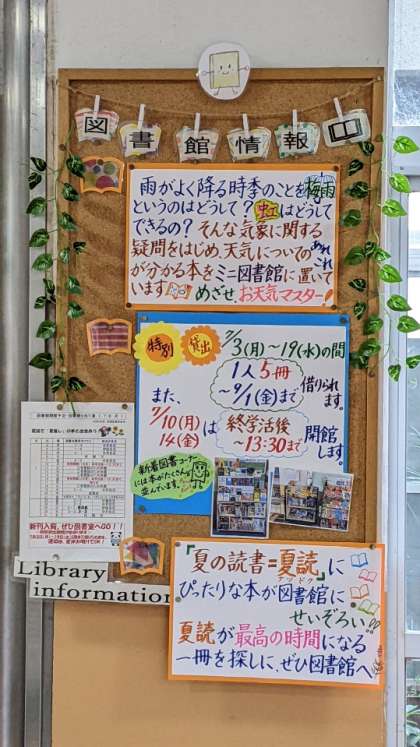 図書館情報
雨がよく降る時季のことを梅雨
というのはどうして？虹はどうして
できるの？そんな気象に関する
疑問をはじめ、天気についてのあれこれ
が分かる本をミニ図書館に置いて
います。めざせ、お天気マスター！
特別 貸出 7/3(月)～19(水)の間
1人5冊
～9/1(金)まで 借りられます。
また、
7/10(月)
14(金) は 終学活後
～13:30まで 開館します。
新着図書コーナー
には本がたくさん
並んでいます。
新刊入荷、ぜひ図書室へGO！！
Library
information
『夏の読書=夏読』に
ナツドク
ぴったりな本が図書館に
せいぞろい!!
夏読が最高の時間になる
一冊を探しに、ぜひ図書館へ